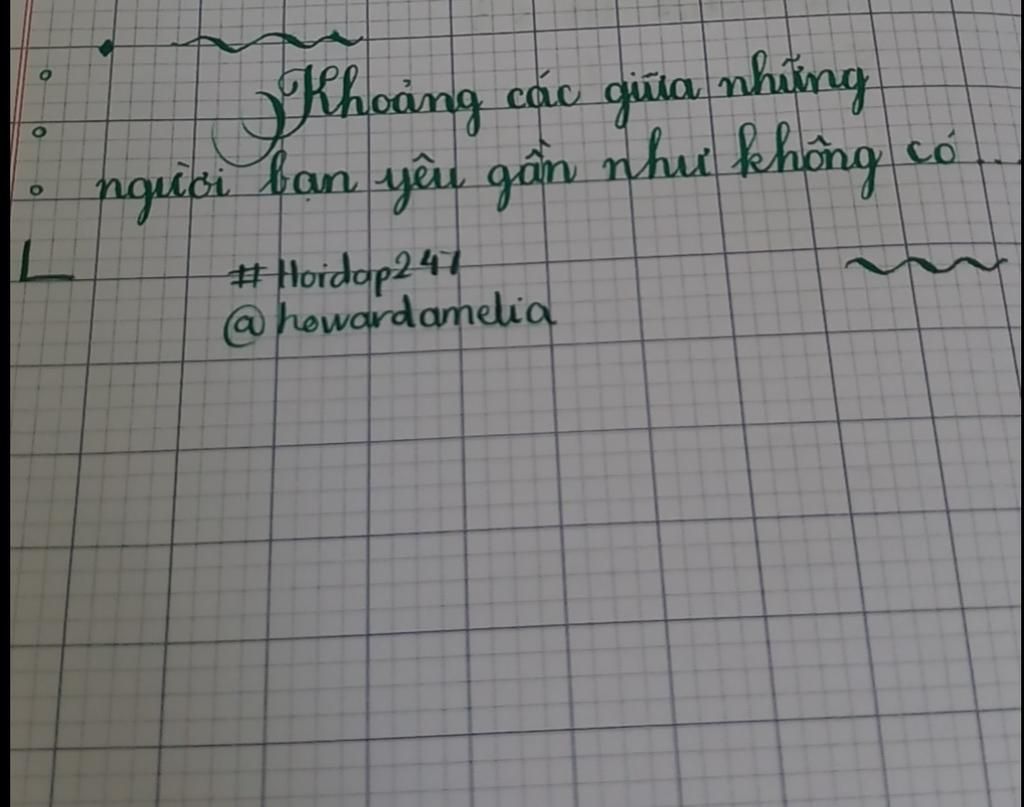 Khoảng các giữa những
người bạn yêu gần như không có...
#Hoidap247
@howardamelia